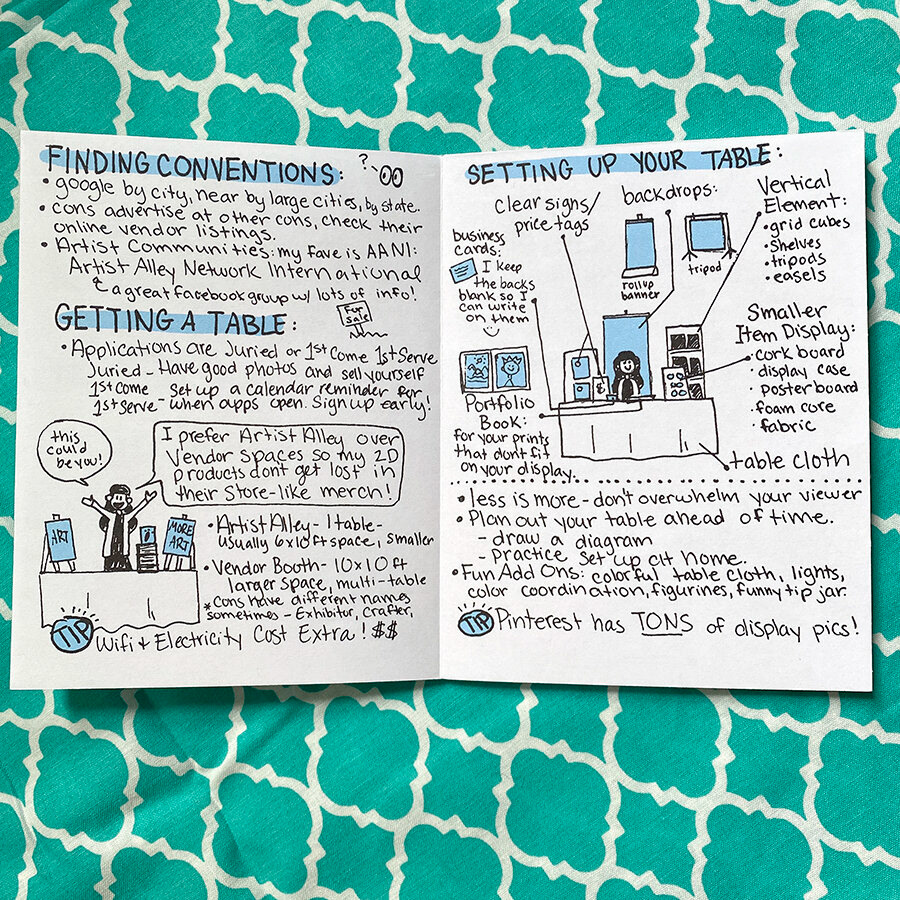 FINDING CONVENTIONS: ?
• google by city, near by large cities, by state.
• cons advertise at other cons, check their
online vendor listings.
• Artist Communities: my fave is AANI:
Artist Alley Network International
a great facebook group w/ lots of info!
GETTING A TABLE:
For
Sale
• Applications are Juried or 1st Come 1st Serve
Juried - Have good photos and sell yourself
1st Come
1st Serve - Set up a calendar reminder for
when apps open. Sign up early!
this
could
be you!
I prefer Artist Alley over
Vendor spaces so my 2D
products dont get lost in
their store-like merch!
ART
MORE
ART
• Artist Alley - 1 table -
usually 6x10ft space, smaller
• Vendor Booth - 10x10 ft
larger space, multi-table
*Cons have different names
sometimes - Exhibitor, Crafter,
TIP Wifi + Electricity Cost Extra! $$
SETTING UP YOUR TABLE:
clear signs/
price tags
backdrops:
rollup
banner
tripod
Vertical
Element:
• grid cubes
• Shelves
• tripods
• easels
business
cards:
I keep
the backs
blank so I
can write
on them
Smaller
Item Display:
• cork board
• display case
• poster board
• foam core
• fabric
Portfolio
Book:
for your prints
that don't fit
on your display.
table cloth
• less is more - don't overwhelm your viewer
• Plan out your table ahead of time.
- draw a diagram
- practice set up at home.
• Fun Add Ons: colorful table cloth, lights,
color coordination, figurines, funny tip jar.
TIP Pinterest has TONS of display pics!